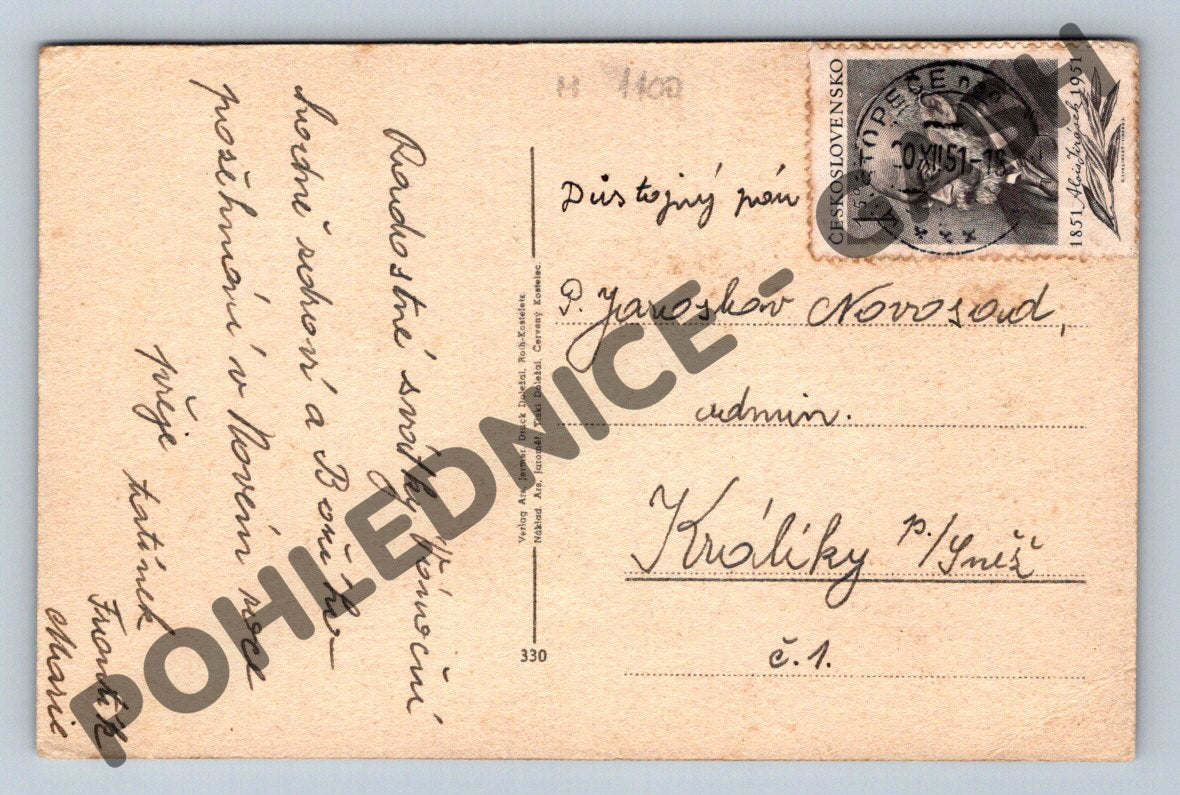 Radostné svátky Vánoční
hodně zdraví a Božího
požehnání v Novém roce
přeje tatínek
Frantík
Marie
M 1100
330
Verlag Ars, Jermer, Druck Doležal, Roth-Kosteletz
Náklad. Ars, Jaroměř, Tiskl Doležal, Červený Kostelec
ČESKOSLOVENSKO
1851 Alois Jirásek 1951
XII 51-18
Důstojný pán
P. Jaroslav Novosad,
admin.
Králíky p./Sněž
č. 1.
POHLEDNICE -